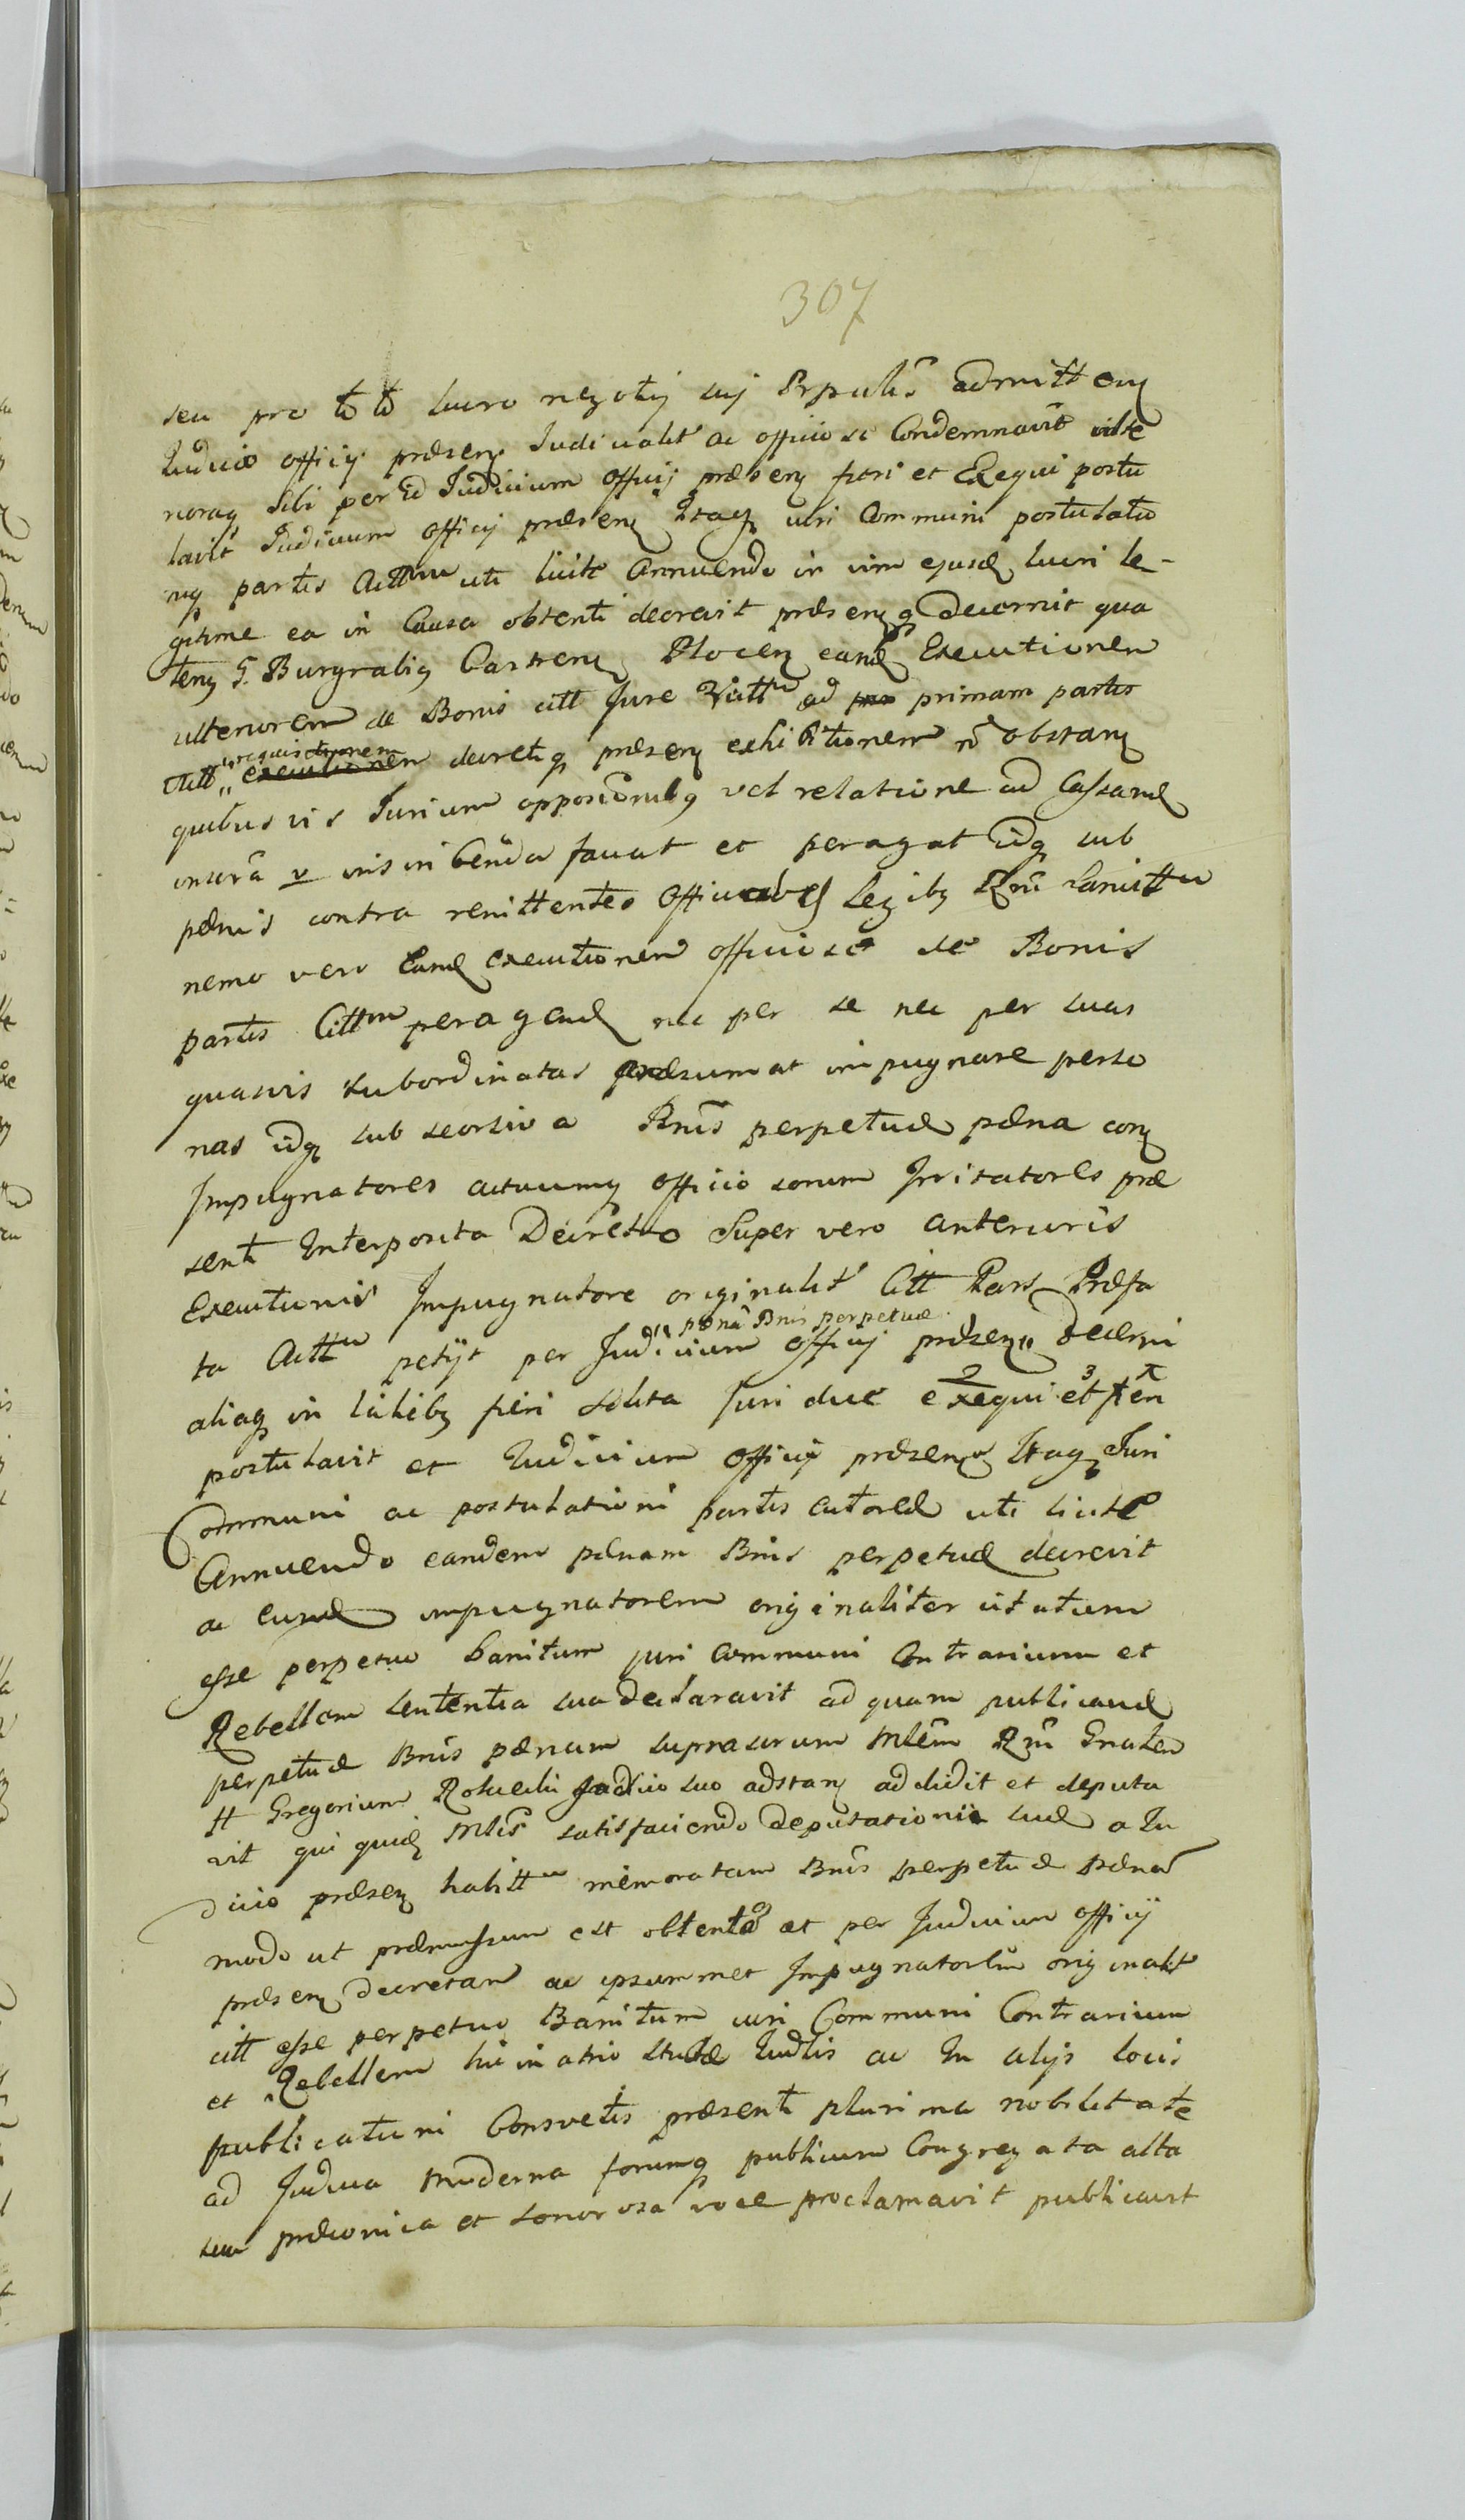 307
seu pro tto lucro negotij sui Ppulis admitten
Iudicio officij præsen Iudicialit ac officiose Condemnavit
noraq sibi per id Iudicium officij præsen fieri et Exequi postu
lavit Iudicium officij præsen Itaq iuri Communi postulatio
niq partis Actt uti licite Annuendo in vim ejusd lucri le-
gitime ea in Causa obtenti decrevit præsenq decernit qua
teng G. Burgrabig Castreng Plocen eand Executionem
ulteriorem de Bonis citt Jure Victt ad primam partis
Actt requisitionem executionem decretiq præsen exhibitionem n obstan
quibusvis Iurium oppositionibq vel relatione ad Cassand
inscribenda faciat et peragat idq sub
pænis contra renittentes Officialib Legibq Rni sancitt
nemo vero Eand executionem officiose de Bonis
partis Citt peragend nec per se nec per suas
quasvis subordinatas præsumat impugnare perso
nas idq sub seorsiva Bnis perpetuæ pæna con
Impugnatores actuumq officiosorum Irritatores præ
senti Interposita Decreto Super vero anterioris
Executionis Impugnatore originalit Citt Pars Præfa
ta Actt petijt per Iudicium officij præsen pœnā Bnis perpetuæ decerni
aliaq in talibq fieri solita Juri duc exequi 2 et 3 fieri
postulavit et Iudicium officij præsen Itaq Juri
Communi ac postulationi partis actoreæ uti licite
Annuendo eandem pænam Bnis perpetuæ decrevit
ac eund impugnatorem originaliter citatum
esse perpetuo banitum juri communi Contrarium et
Rebellem sententia sua declaravit ad quam publicand
perpetuæ Bnis pænam suprasarum Mlem Rni Gnalem
H Gregorium Judicio suo adstan addidit et deputa
vit qui quid Mlis satisfaciendo deputationi suæ a Iu
dicio præsen habitt memoratam Bnis perpetuæ pænā
modo ut præmissum est obtento et per Iudicium officij
præsen decretam ac ipsummet Impugnatorem originalit
citt esse perpetuo Banitum iuri Communi Contrarium
et Rebellem hic in atrio stubæ Iudlis ac In alijs locis
publicationi Consvetis præsenti plurima nobilitate
ad Judicia moderna forumq publicum Congregata alta
sua præconica et sonorosa voce proclamavit publicavit